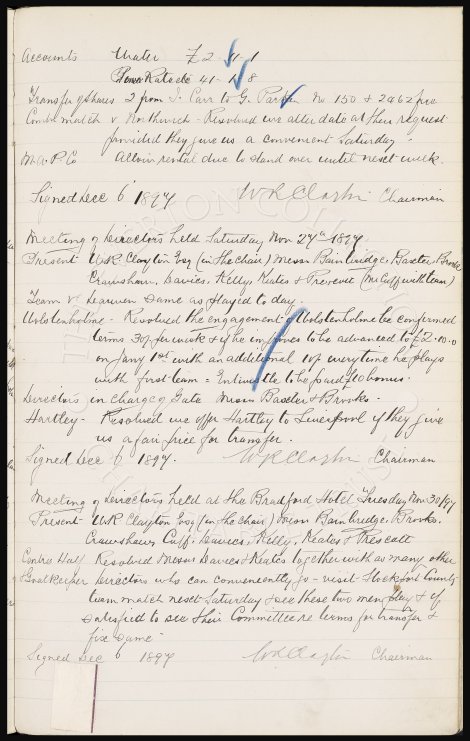 Accounts Water £2 " 11 - 1
Poor Rates &c 41 - 1 8
Transfer of Shares 2 from J. Carr to G. Parker No 150 & 2062 free
Comb. match v Northwich - Resolved we alter date at their request
provided they give us a convenient Saturday.
M. & P. Co Allow rental due to stand over until next week.
Signed Dec 6 1897 W R Clayton Chairman
Meeting of Directors held Saturday Nov 27th 1897.
Present W.R. Clayton Esq (in the chair) Messrs Bainbridge, Baxter, Brooks
Crawshaw, Davies, Kelly, Keates & Prescott (Mr Cuff with team)
Team v same as played to day.
Wolstenholme - Resolved the engagement of Wolstenholme be confirmed
terms 30/- per week & if he improves to be advanced to £2.10.0
on Jany 1st with an additional 10/- everytime he plays
with first team = to be paid £10 bonus.
Directors in charge of Gate Messrs Baxter & Brooks.
Hartley - Resolved we offer Hartley to Liverpool if they give
us a fair price for transfer.
Signed Dec 6 1897. W R Clayton Chairman
Meeting of Directors held at the Bradford Hotel Tuesday Nov 30/97
Present W.R. Clayton Esq (in the chair) Messrs Bainbridge, Brooks.
Crawshaw, Cuff, Davies, Kelly, Keates & Prescott
Centre Half Resolved Messrs Davies & Keates together with as many other
& Goalkeeper Directors who can conveniently go - visit Stockport County
team match next Saturday & see these two men play & if
satisfied to see their Committee re terms for transfer &
fix same -
Signed Dec 6 1897 W R Clayton Chairman